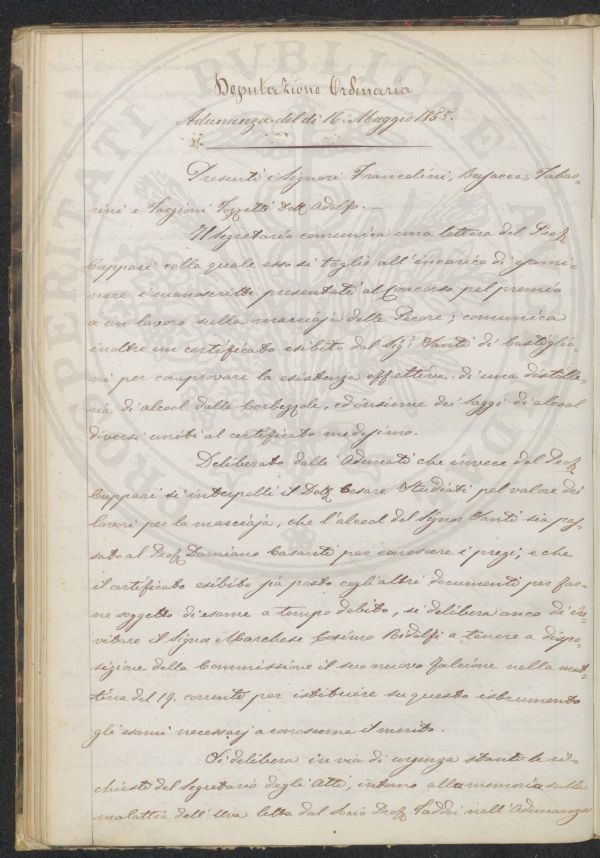 Deputazione Ordinaria
Adunanza del dì 16. Maggio 1855.
Presenti i Signori Francolini, Taba-
rini e Targioni Tozzetti Dott. Adolfo.
Il Segretario comunica una lettera del Prof.
Cuppari colla quale esso si toglie all'incarico di esami-
nare i manoscritti presentati al Concorso pel premio
a un lavoro sulla marciaja delle Pecore; comunica
inoltre un certificato esibito dal Sig.r Santi di Castiglio-
ni per comprovare la esistenza effettiva di una distille-
ria di alcool dalle Corbezzole, ed insieme dei saggi di alcool
diversi uniti al certificato medesimo.
Deliberato dalli Adunati che invece del Prof.
Cuppari si interpelli il Dott. Cesare Studiati pel valore dei
lavori per la marciaja, che l'alcool del Signor Santi sia pas-
sato al Prof. Damiano Casanti per conoscere i pregi; e che
il certificato esibito sia posto cogli altri documenti per far-
ne soggetto di esame a tempo debito, si delibera anco di in-
vitare il Signor Marchese Cosimo Ridolfi a tenere a dispo-
sizione della Commissione il suo nuovo falcione nella mat-
tina del 19. corrente per istituire su questo istrumento
gli esami necessarj a conoscerne il merito.
Si delibera in via di urgenza stante le ri-
chieste del Segretario degli Atti, intorno alla memoria sulla
malattia dell'Uva letta dal Socio Prof. Taddei nell'Adunanza
PROSPERITATI PVBLICAE AVGENDAE